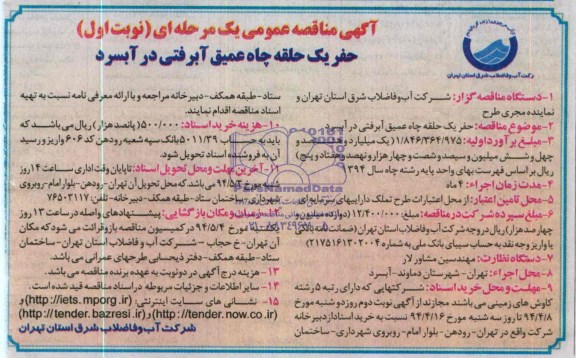 آگهی مناقصه عمومی یک مرحله ای (نوبت اول)
حفر یک حلقه چاه عمیق آبرفتی در آبسرد
شرکت آب و فاضلاب شرق استان تهران
۱-دستگاه مناقصه گزار: شرکت آب و فاضلاب شرق استان تهران و
نماینده مجری طرح
۲-موضوع مناقصه: حفر یک حلقه چاه عمیق آبرفتی در آبسرد
۳-مبلغ برآورد اولیه: ۱/۸۴۶/۹۷۵/ (یک میلیارد و هشتصد و
چهل و شش میلیون و سیصد و شصت و چهار هزار و نهصد و هفتاد و پنج)
ریال بر اساس فهرست بهای واحد پایه رشته چاه سال ۱۳۹۴
۴-مدت زمان اجراء: ۴ ماه
۵-محل تامین اعتبار: از محل اعتبارات طرح تملک دارایيهای سرمایه ای
۶-مبلغ سپرده شرکت در مناقصه: مبلغ ۱۲/۴۰۰/۰۰۰ (دوازده میلیون و
چهارصد هزار) ریال در وجه شرکت آب و فاضلاب شرق استان تهران (ضمانت نامه بانکی
یا واریز وجه نقد به حساب سیبای بانک ملی به شماره ۲۱۷۵۱۶۱۳۰۲۰۰۴)
۷-دستگاه نظارت: مهندسین مشاور لار
۸-محل اجراء: تهران- شهرستان دماوند-آبسرد
۹-مهلت و محل خرید اسناد: شرکتهایی که دارای رتبه ۵ رشته
کاوش های زمینی می باشند مجازند از آگهی نوبت دوم روز دوشنبه مورخ
۹۴/۴/۸ تا روز سه شنبه مورخ ۹۴/۴/۱۶ نسبت به خرید اسناد از دبیرخانه
شرکت واقع در تهران-رودهن-بلوار امام-روبروی شهرداری-ساختمان
ستاد-طبقه همکف-دبیرخانه مراجعه و با ارائه معرفی نامه نسبت به تهیه
اسناد مناقصه اقدام نمایند.
۱۰-هزینه خرید اسناد: ۵۰۰/۰۰۰ (پانصد هزار) ریال می باشد که
باید به حساب ۵۰۱۱/۳۹ بانک سپه شعبه رودهن کد ۶۰۶ واریز و رسید
آن به فروشنده اسناد تحویل شود.
۱۱-آخرین مهلت و محل تحویل اسناد: تا پایان وقت اداری ساعت ۱۴ روز
شنبه مورخ می باشد. که محل تحویل آن تهران-رودهن-بلوار امام-روبروی
شهرداری-ساختمان ستاد-طبقه همکف-دبیرخانه-تلفن: ۷۶۵۰۳۱۱۷
۱۲-زمان و مکان بازگشایی: پیشنهادهای واصله در ساعت ۱۳ روز
مورخ ۹۴/۵/۴ در کمیسیون مناقصه باز و قرائت می شود که مکان
آن تهران-خ حجاب -شرکت آب و فاضلاب استان تهران-ساختمان
ستاد-طبقه همکف-دفتر ذیحسابی طرحهای عمرانی می باشد.
۱۳-هزینه درج آگهی در دو نوبت به عهده برنده مناقصه می باشد.
۱۴-سایر اطلاعات و جزئیات مربوطه در اسناد مناقصه قید شده است.
۱۵- نشانی های سایت اینترنتی: (http://iets.mporg.ir) و
(http://tender.now.co.ir) و (http://tender.bazresi.ir)
شرکت آب و فاضلاب شرق استان تهران
ParsNamadData